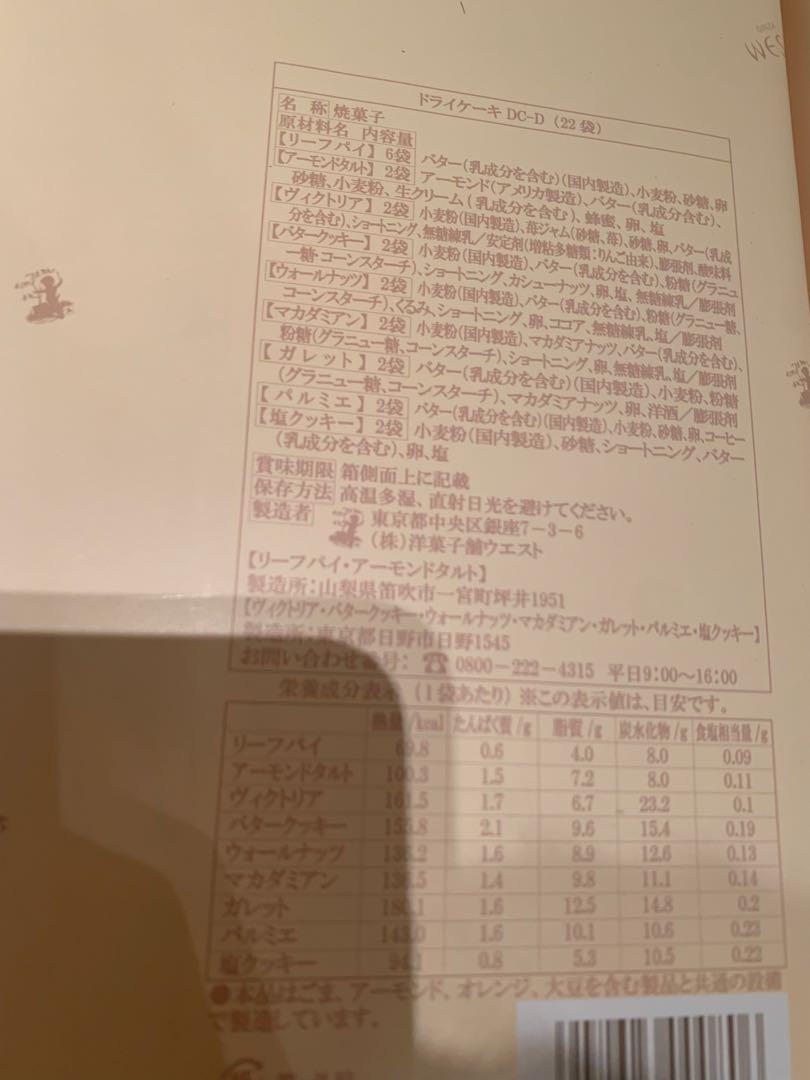 WES
ドライケーキ DC-D (22袋)
名 称 焼菓子
原材料名 内容量
【リーフパイ】6袋 バター(乳成分を含む)(国内製造)、小麦粉、砂糖、卵
【アーモンドタルト】2袋 アーモンド(アメリカ製造)、バター(乳成分含む)、
砂糖、小麦粉、生クリーム(乳成分を含む)、蜂蜜、卵、塩
【ヴィクトリア】2袋 小麦粉(国内製造)、苺ジャム(砂糖、苺)、砂糖、卵、バター(乳成
分を含む)、ショートニング、無糖練乳/安定剤(増粘多糖類:りんご由来)、膨張剤、酸味料
【バタークッキー】2袋 小麦粉(国内製造)、バター(乳成分を含む)、粉糖(グラニュ
ー糖・コーンスターチ)、ショートニング、カシューナッツ、卵、塩、無糖練乳/膨張剤
【ウォールナッツ】2袋 小麦粉(国内製造)、バター(乳成分を含む)、粉糖(グラニュー糖、
コーンスターチ)、くるみ、ショートニング、卵、ココア、無糖練乳、塩/膨張剤
【マカダミアン】2袋 小麦粉(国内製造)、マカダミアナッツ、バター(乳成分を含む)、
粉糖(グラニュー糖、コーンスターチ)、ショートニング、卵、無糖練乳、塩/膨張剤
【ガレット】2袋 バター(乳成分を含む)(国内製造)、小麦粉、粉糖
(グラニュー糖、コーンスターチ)、マカダミアナッツ、卵、洋酒/膨張剤
【パルミエ】2袋 バター(乳成分を含む)(国内製造)、小麦粉、砂糖、卵、コーヒー
【塩クッキー】2袋 小麦粉(国内製造)、砂糖、ショートニング、バター
(乳成分を含む)、卵、塩
賞味期限 箱側面上に記載
保存方法 高温多湿、直射日光を避けてください。
製造者 東京都中央区銀座7-3-6
(株)洋菓子舗ウエスト
【リーフパイ・アーモンドタルト】
製造所:山梨県笛吹市一宮町坪井1951
【ヴィクトリア・バタークッキー・ウォールナッツ・マカダミアン・ガレット・パルミエ・塩クッキー】
製造所:東京都日野市日野1545
お問い合わせ番号: ☎ 0800-222-4315 平日9:00〜16:00
栄養成分表示(1袋あたり)※この表示値は、目安です。
熱量/kcal たんぱく質/g 脂質/g 炭水化物/g 食塩相当量/g
リーフパイ 69.8 0.6 4.0 8.0 0.09
アーモンドタルト 100.3 1.5 7.2 8.0 0.11
ヴィクトリア 161.5 1.7 6.7 23.2 0.1
バタークッキー 155.8 2.1 9.6 15.4 0.19
ウォールナッツ 136.2 1.6 8.9 12.6 0.13
マカダミアン 136.5 1.4 9.8 11.1 0.14
ガレット 180.1 1.6 12.5 14.8 0.2
パルミエ 143.0 1.6 10.1 10.6 0.23
塩クッキー 94.1 0.8 5.3 10.5 0.22
●本品はごま、アーモンド、オレンジ、大豆を含む製品と共通の設備
で製造しています。